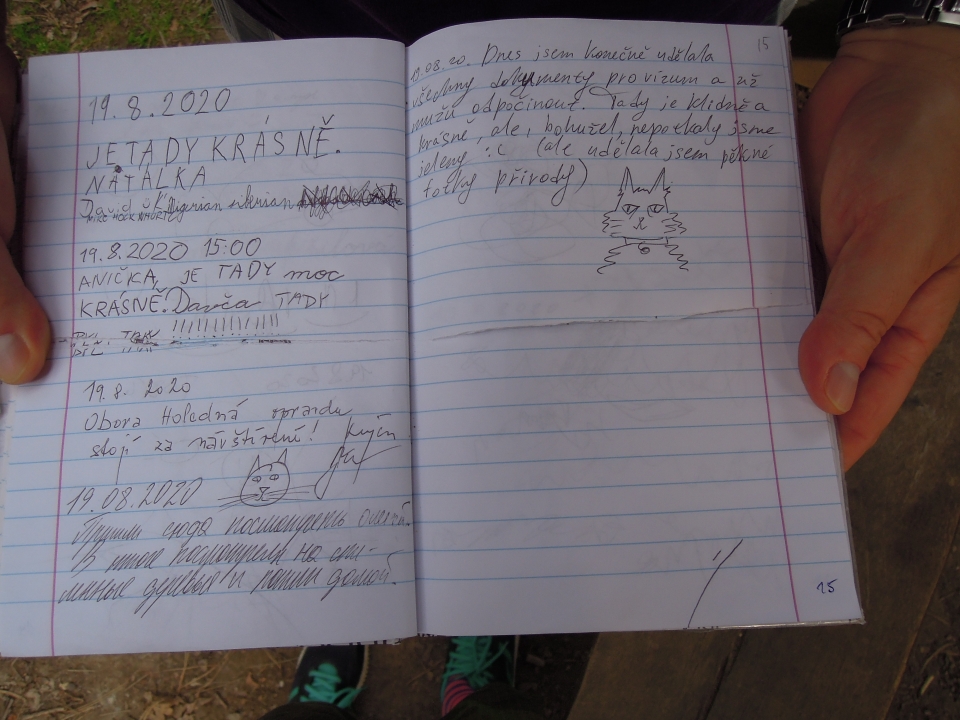 19.8.2020
JE TADY KRÁSNĚ.
NATÁLKA
David
19.8.2020 15:00
ANIČKA, JE TADY moc
KRÁSNĚ! Davča TADY
!!!!!!!!!!!!!
19.8. 2020
Obora Holedná opravdu
stojí za navštívení!
19.08.2020
Пришли сюда посмотреть оленей.
В итоге посмотрели на
деревья и пошли домой.
15
19.08.20. Dnes jsem konečně udělala
všechny dokumenty pro vízum a už
můžu odpočinout. Tady je klidně a
krásně, ale, bohužel, nepotkaly jsme
jeleny :c (ale udělala jsem pěkné
fotky přírody)
15